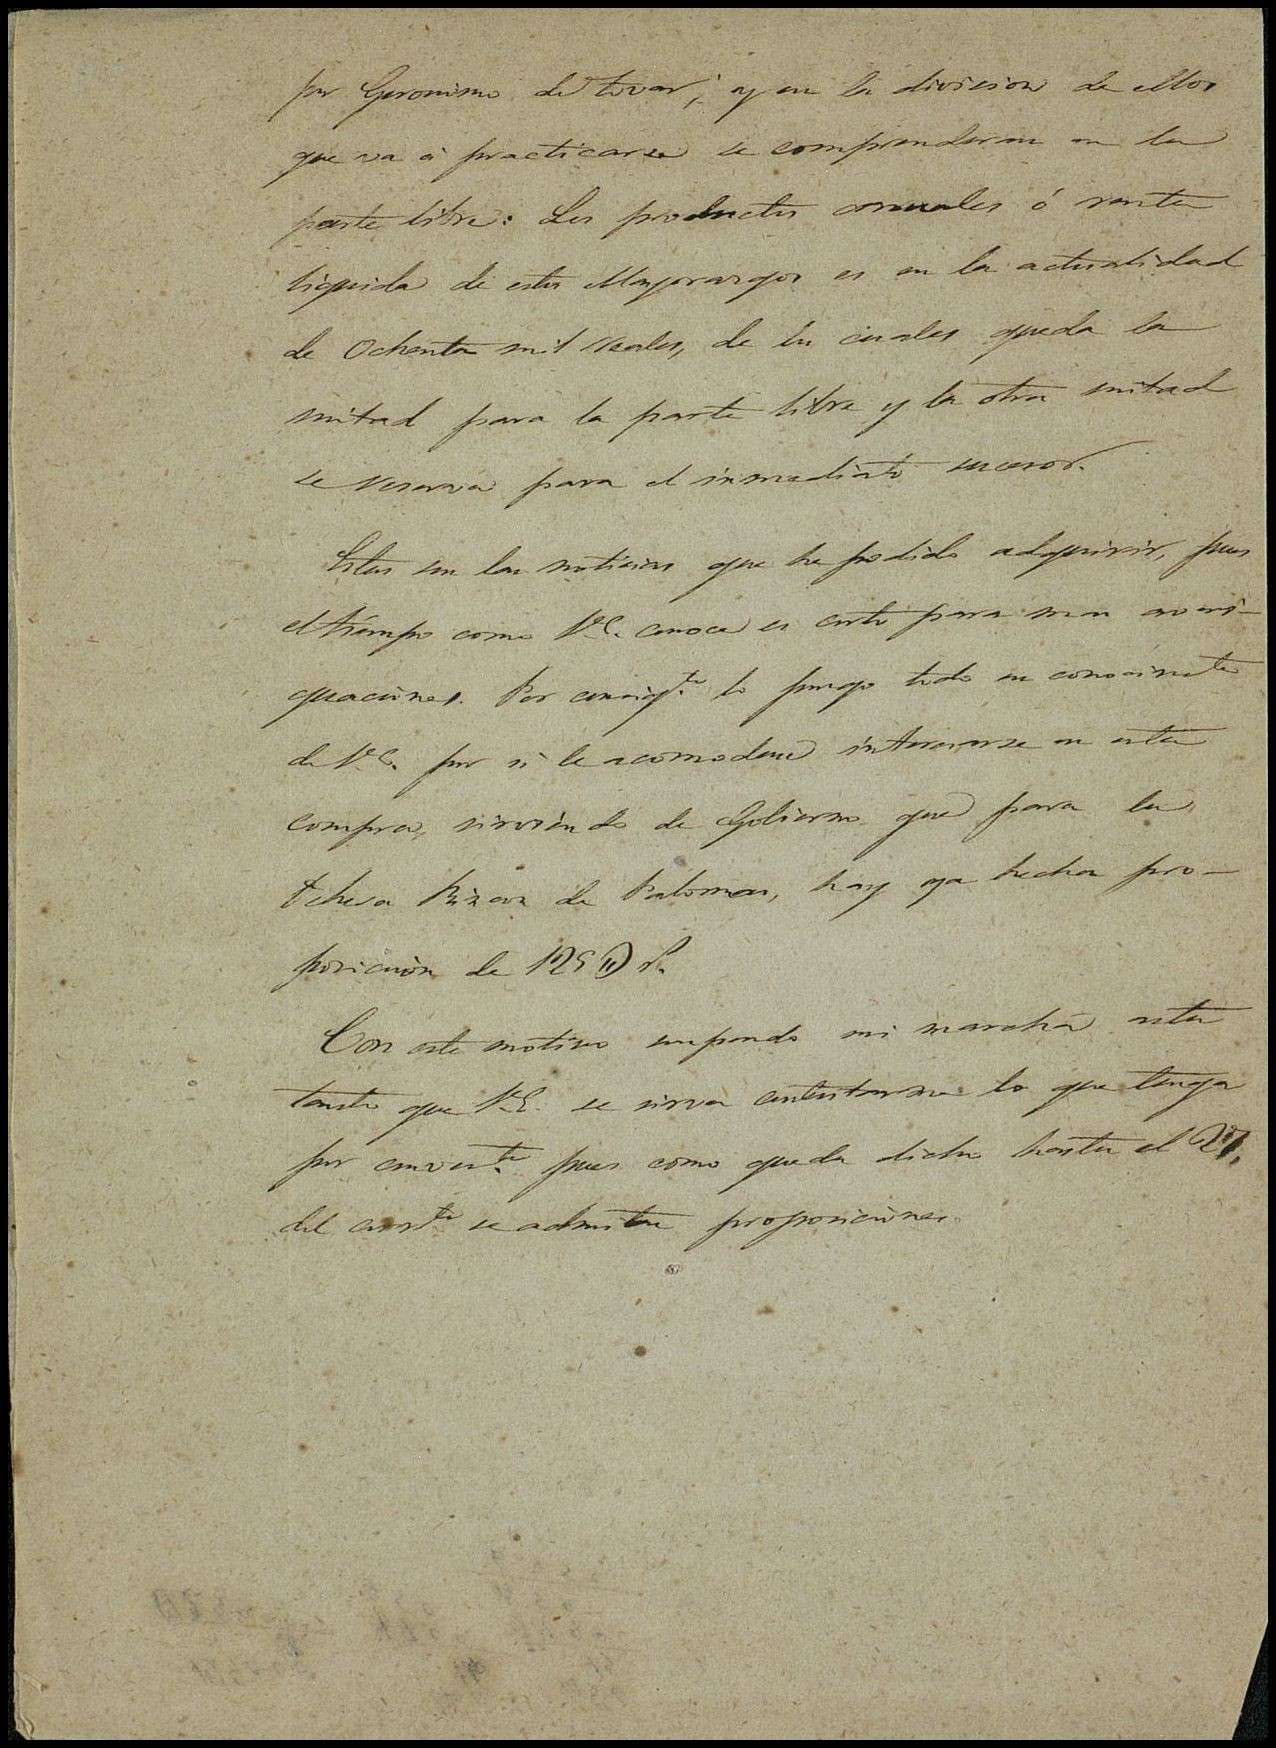 por Geronimo de tovar; y en la division de ellos
que va á practicarse se comprenderan en la
parte libre: Los productos anuales ó renta
liquida de estos Mayorazgos es en la actualidad
de Ochenta mil reales, de los cuales queda la
mitad para la parte libre y la otra mitad
se reserva para el inmediato sucesor.
Estas son las noticias que he podido adquirir, pues
el tiempo como V.E. conoce es corto para mas averi-
guaciones. Por consigte. lo pongo todo en conocimto
de V.E. por si le acomodase interesarse en esta
compra, sirviendo de Gobierno que para la
dehesa de Palomas, hay ya hecha pro-
posicion de 125 r.s
Con este motivo suspendo mi marcha entre
tanto que V.E. se sirva contestarme lo que tenga
por convente. pues como queda dicho hasta el
del corrte se admiten proposiciones.